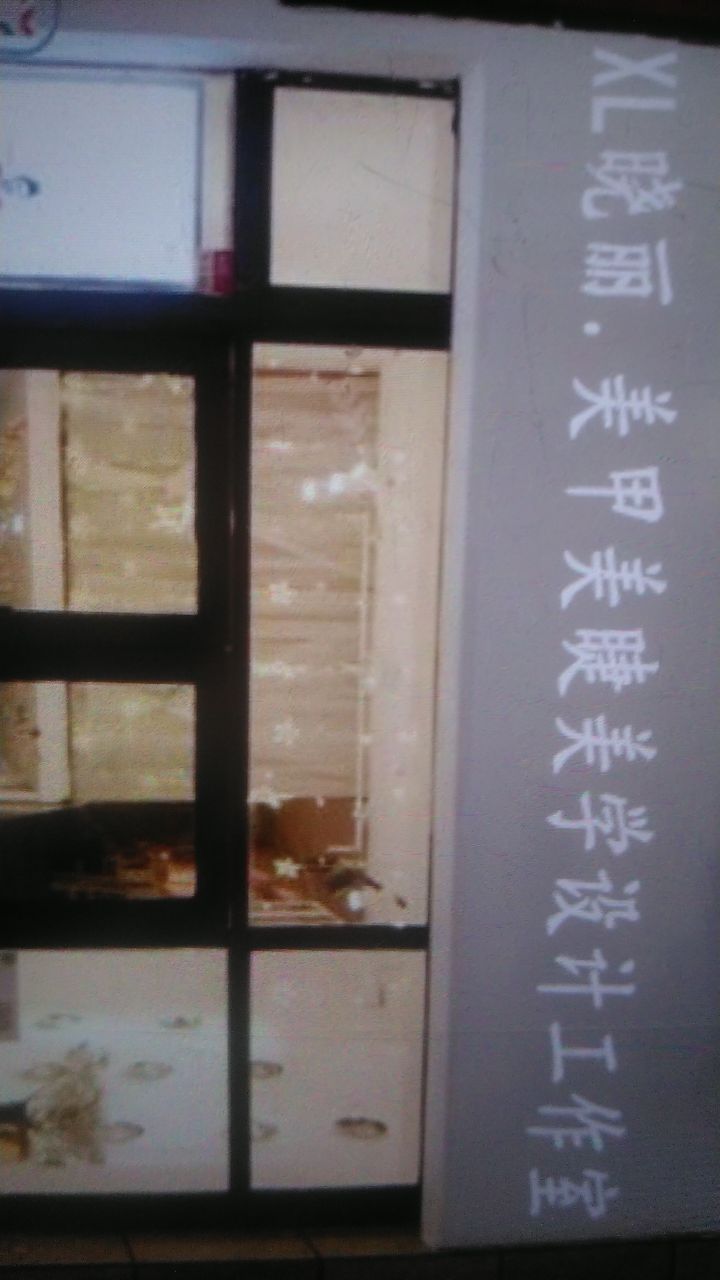 XL晓丽.美甲美睫美学设计工作室